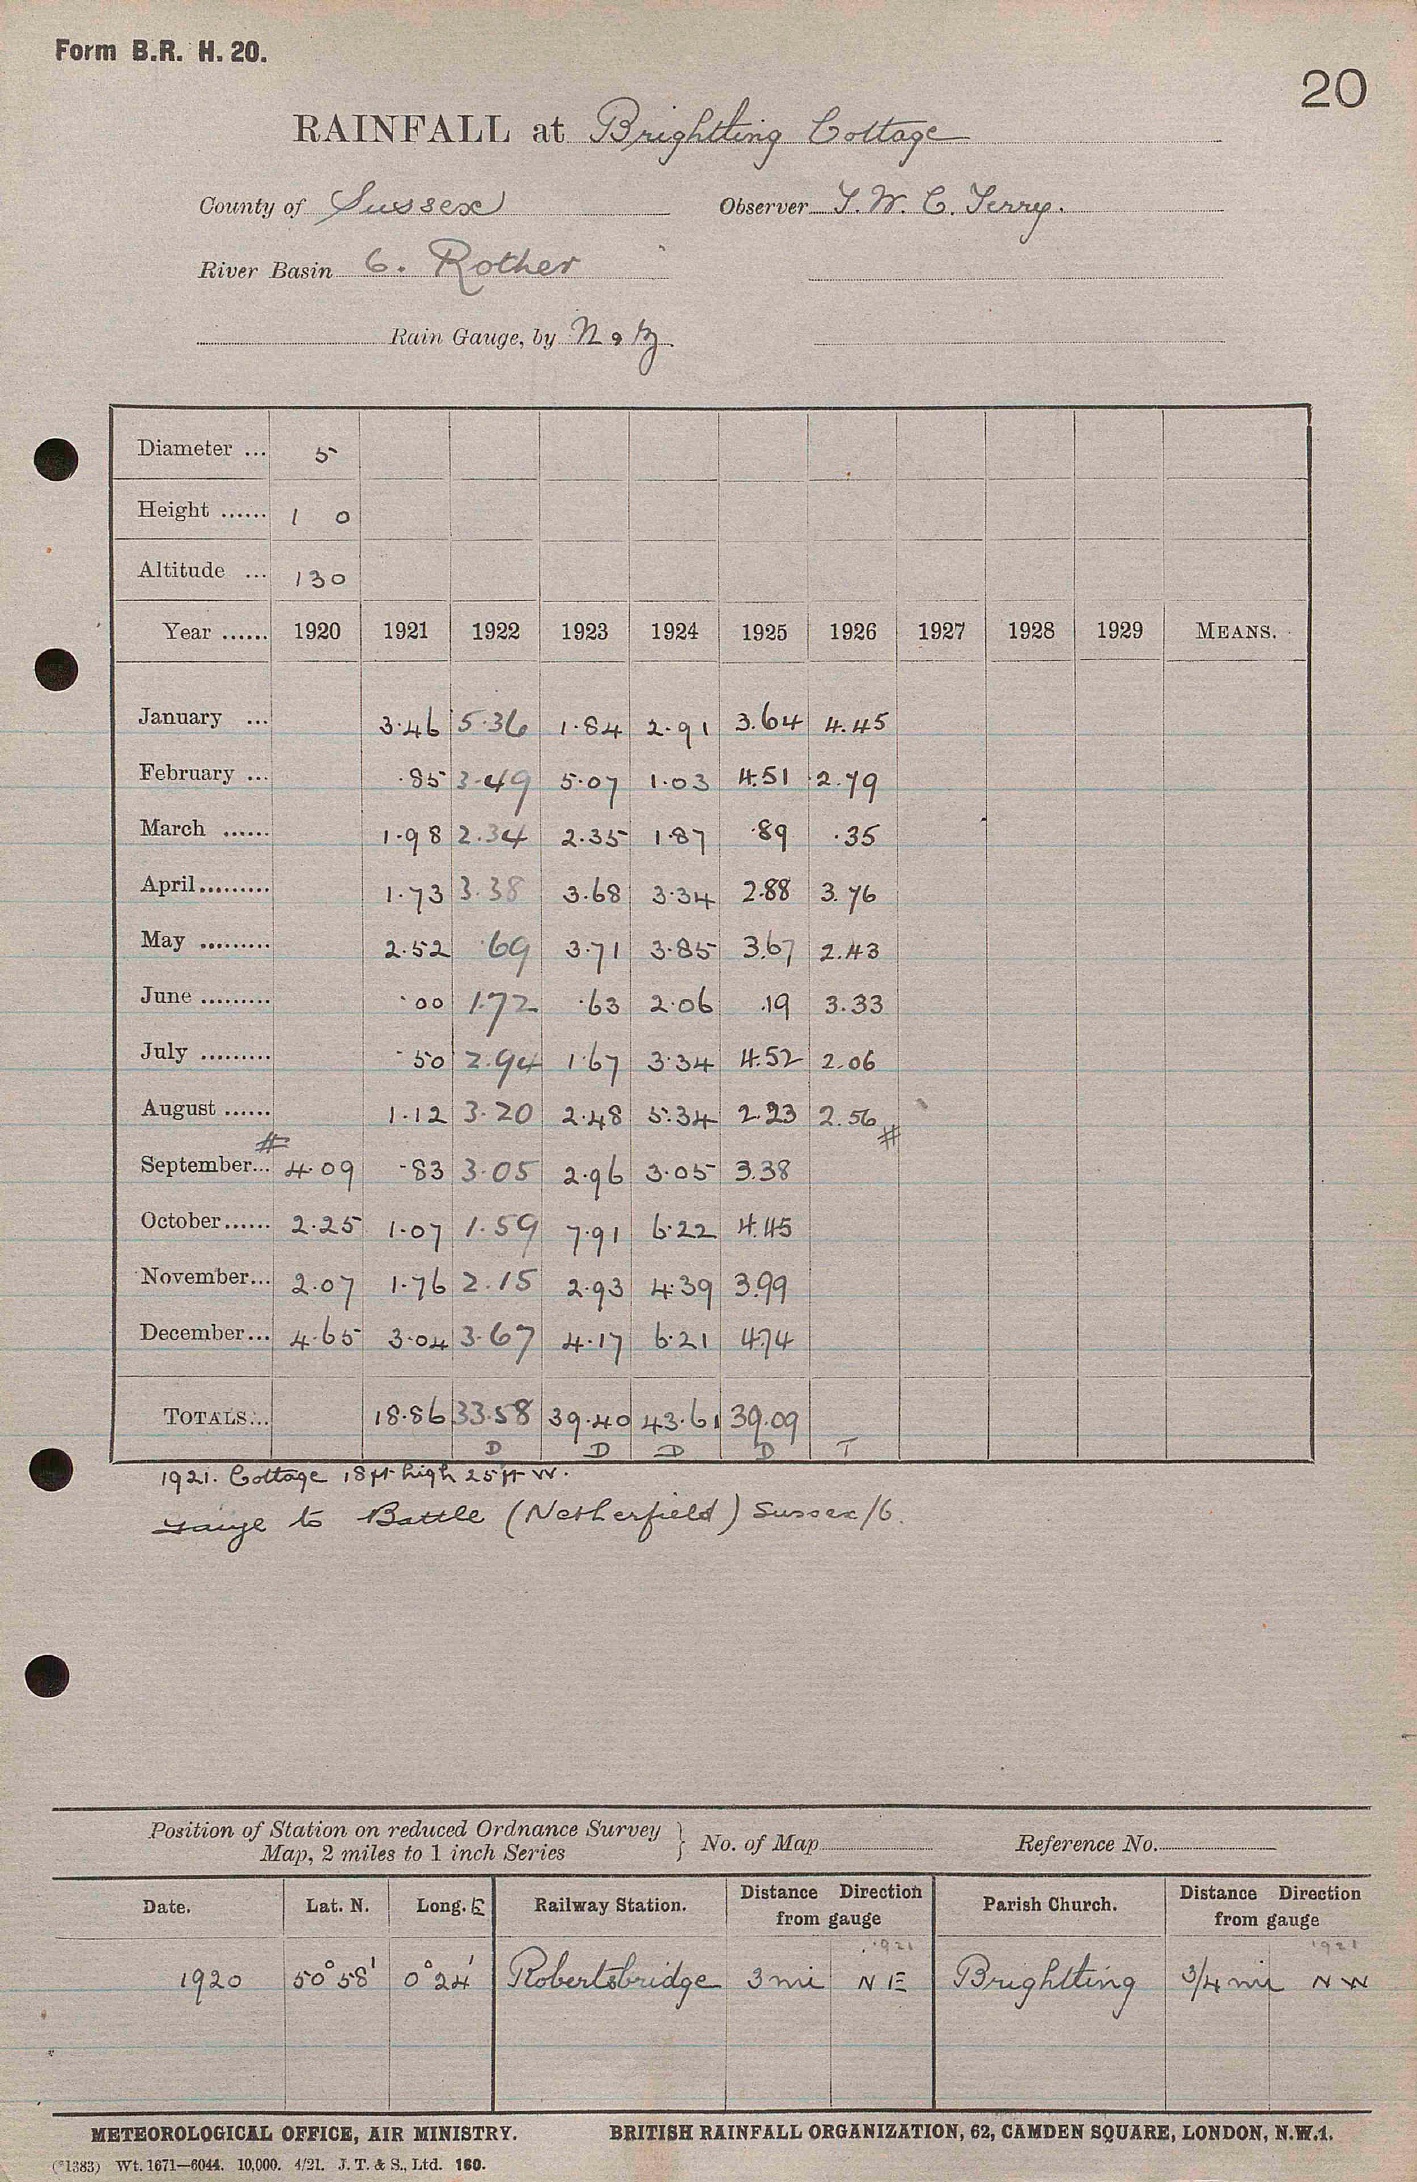 Form B.R. H. 20.
20
RAINFALL at Brightling Cottage
County of Sussex Observer T. W. C. Terry.
River Basin 6. Rother
Rain Gauge, by N & Z.
Diameter ... 5
Height ...... 1 0
Altitude ... 130
Year ...... 1920 1921 1922 1923 1924 1925 1926 1927 1928 1929 MEANS.
January ... 3.46 5.36 1.84 2.91 3.64 4.45
February ... .85 3.49 5.07 1.03 4.51 2.79
March ...... 1.98 2.34 2.35 1.87 .89 .35
April......... 1.73 3.38 3.68 3.34 2.88 3.76
May ......... 2.52 .69 3.71 3.85 3.67 2.43
June ......... .00 1.72 .63 2.06 .19 3.33
July ......... .50 2.94 1.67 3.34 4.52 2.06
August ...... 1.12 3.20 2.48 5.34 2.23 2.56
# #
September... 4.09 .83 3.05 2.96 3.05 3.38
October...... 2.25 1.07 1.59 7.91 6.22 4.45
November... 2.07 1.76 2.15 2.93 4.39 3.99
December... 4.65 3.04 3.67 4.17 6.21 4.74
TOTALS... 18.86 33.58 39.40 43.61 39.09
D D D D T
1921. Cottage 18 ft high 25 ft W.
gauge to Battle (Netherfield) Sussex/6.
Position of Station on reduced Ordnance Survey
Map, 2 miles to 1 inch Series } No. of Map Reference No.
Date. Lat. N. Long. E Railway Station. Distance Direction from gauge Parish Church. Distance Direction from gauge
1921 1921
1920 50°58' 0°24' Robertsbridge 3 mi N E Brightling 3/4 mi N W
METEOROLOGICAL OFFICE, AIR MINISTRY. BRITISH RAINFALL ORGANIZATION, 62, CAMDEN SQUARE, LONDON, N.W.1.
(*1383) Wt. 1671—6044. 10,000. 4/21. J. T. & S., Ltd. 160.